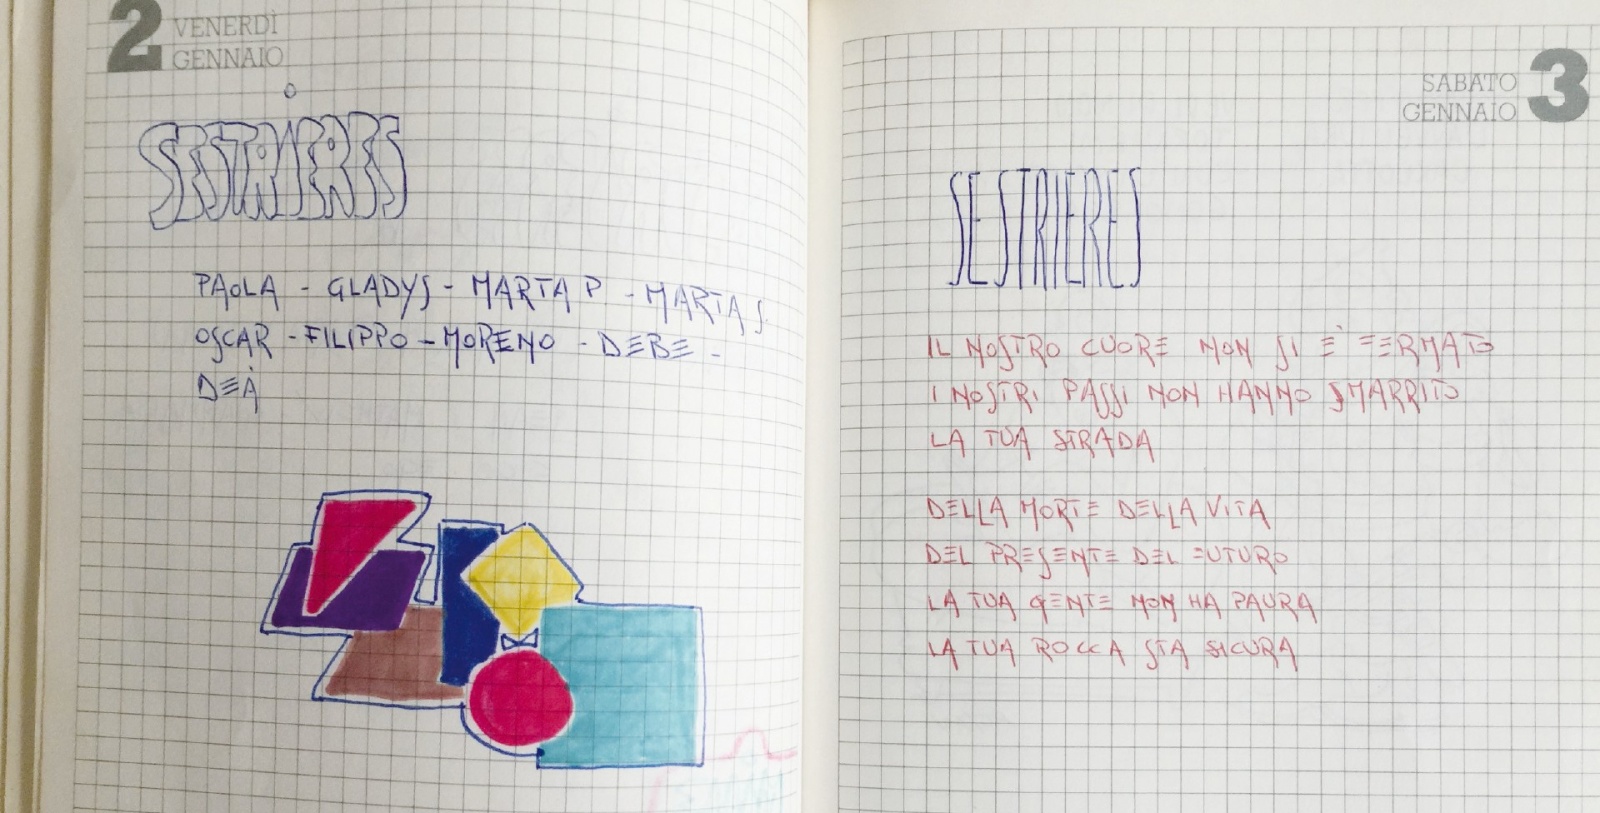 2 VENERDÌ
GENNAIO
SESTRIERES
PAOLA - GLADYS - MARTA P - MARTA S
OSCAR - FILIPPO - MORENO - DEBE -
DEÀ
SABATO 3
GENNAIO
SESTRIERES
IL NOSTRO CUORE NON SI È FERMATO
I NOSTRI PASSI NON HANNO SMARRITO
LA TUA STRADA
DELLA MORTE DELLA VITA
DEL PRESENTE DEL FUTURO
LA TUA GENTE NON HA PAURA
LA TUA ROCCA STA SICURA